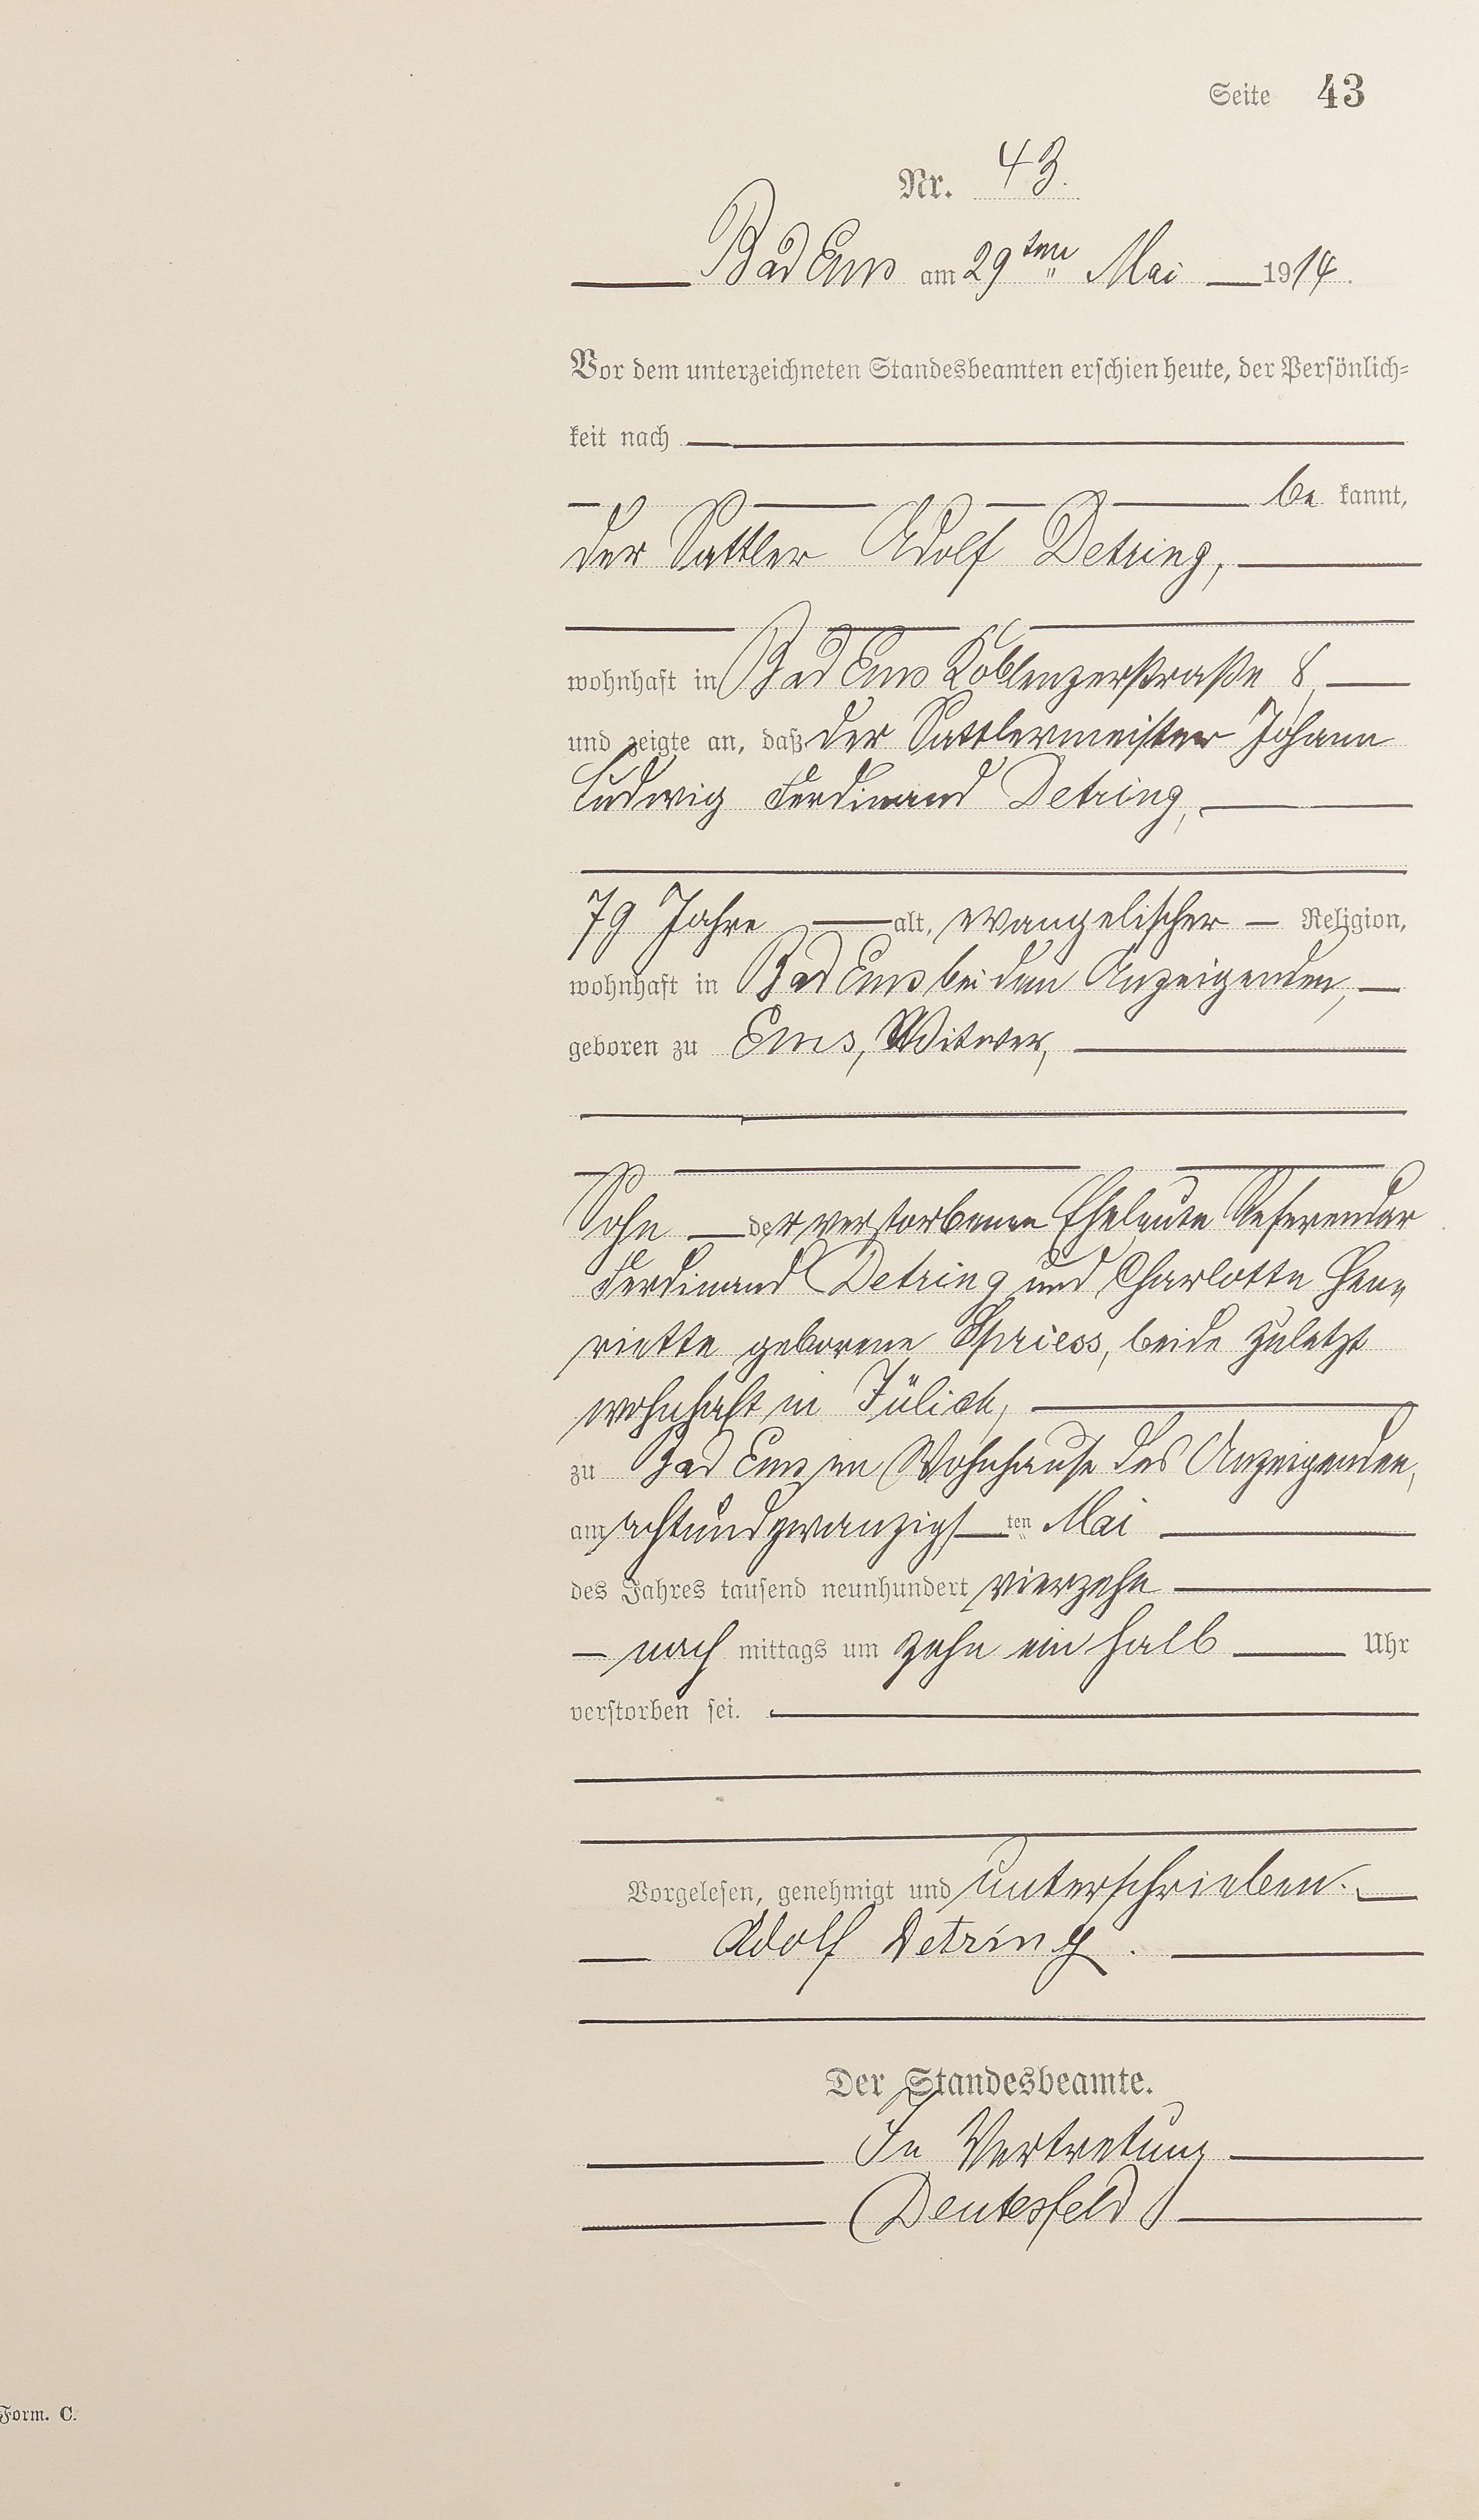 Seite 43
Nr. 43.
Bad Ems am 29ten Mai 1914.
Vor dem unterzeichneten Standesbeamten erschien heute, der Persönlich-
keit nach
be kannt,
der Sattler Adolf Detring,
wohnhaft in Bad Ems Koblenzerstraße 8,
und zeigte an, daß der Sattlermeister Johann
Ludwig Ferdinand Detring,
79 Jahre alt, evangelischer Religion,
wohnhaft in Bad Ems bei dem Anzeigenden,
geboren zu Ems, Witwer,
Sohn der verstorbenen Eheleute Referendar
Ferdinand Detring und Charlotte Hen-
riette geborene Spriess, beide zuletzt
wohnhaft in Jülich,
zu Bad Ems im Wohnhause des Anzeigenden,
am achtundzwanzigsten Mai
des Jahres tausend neunhundert vierzehn
nach mittags um zehn ein halb Uhr
verstorben sei.
Vorgelesen, genehmigt und unterschrieben.
Adolf Detring.
Der Standesbeamte.
In Vertretung
Deutesfeld
Form. C.